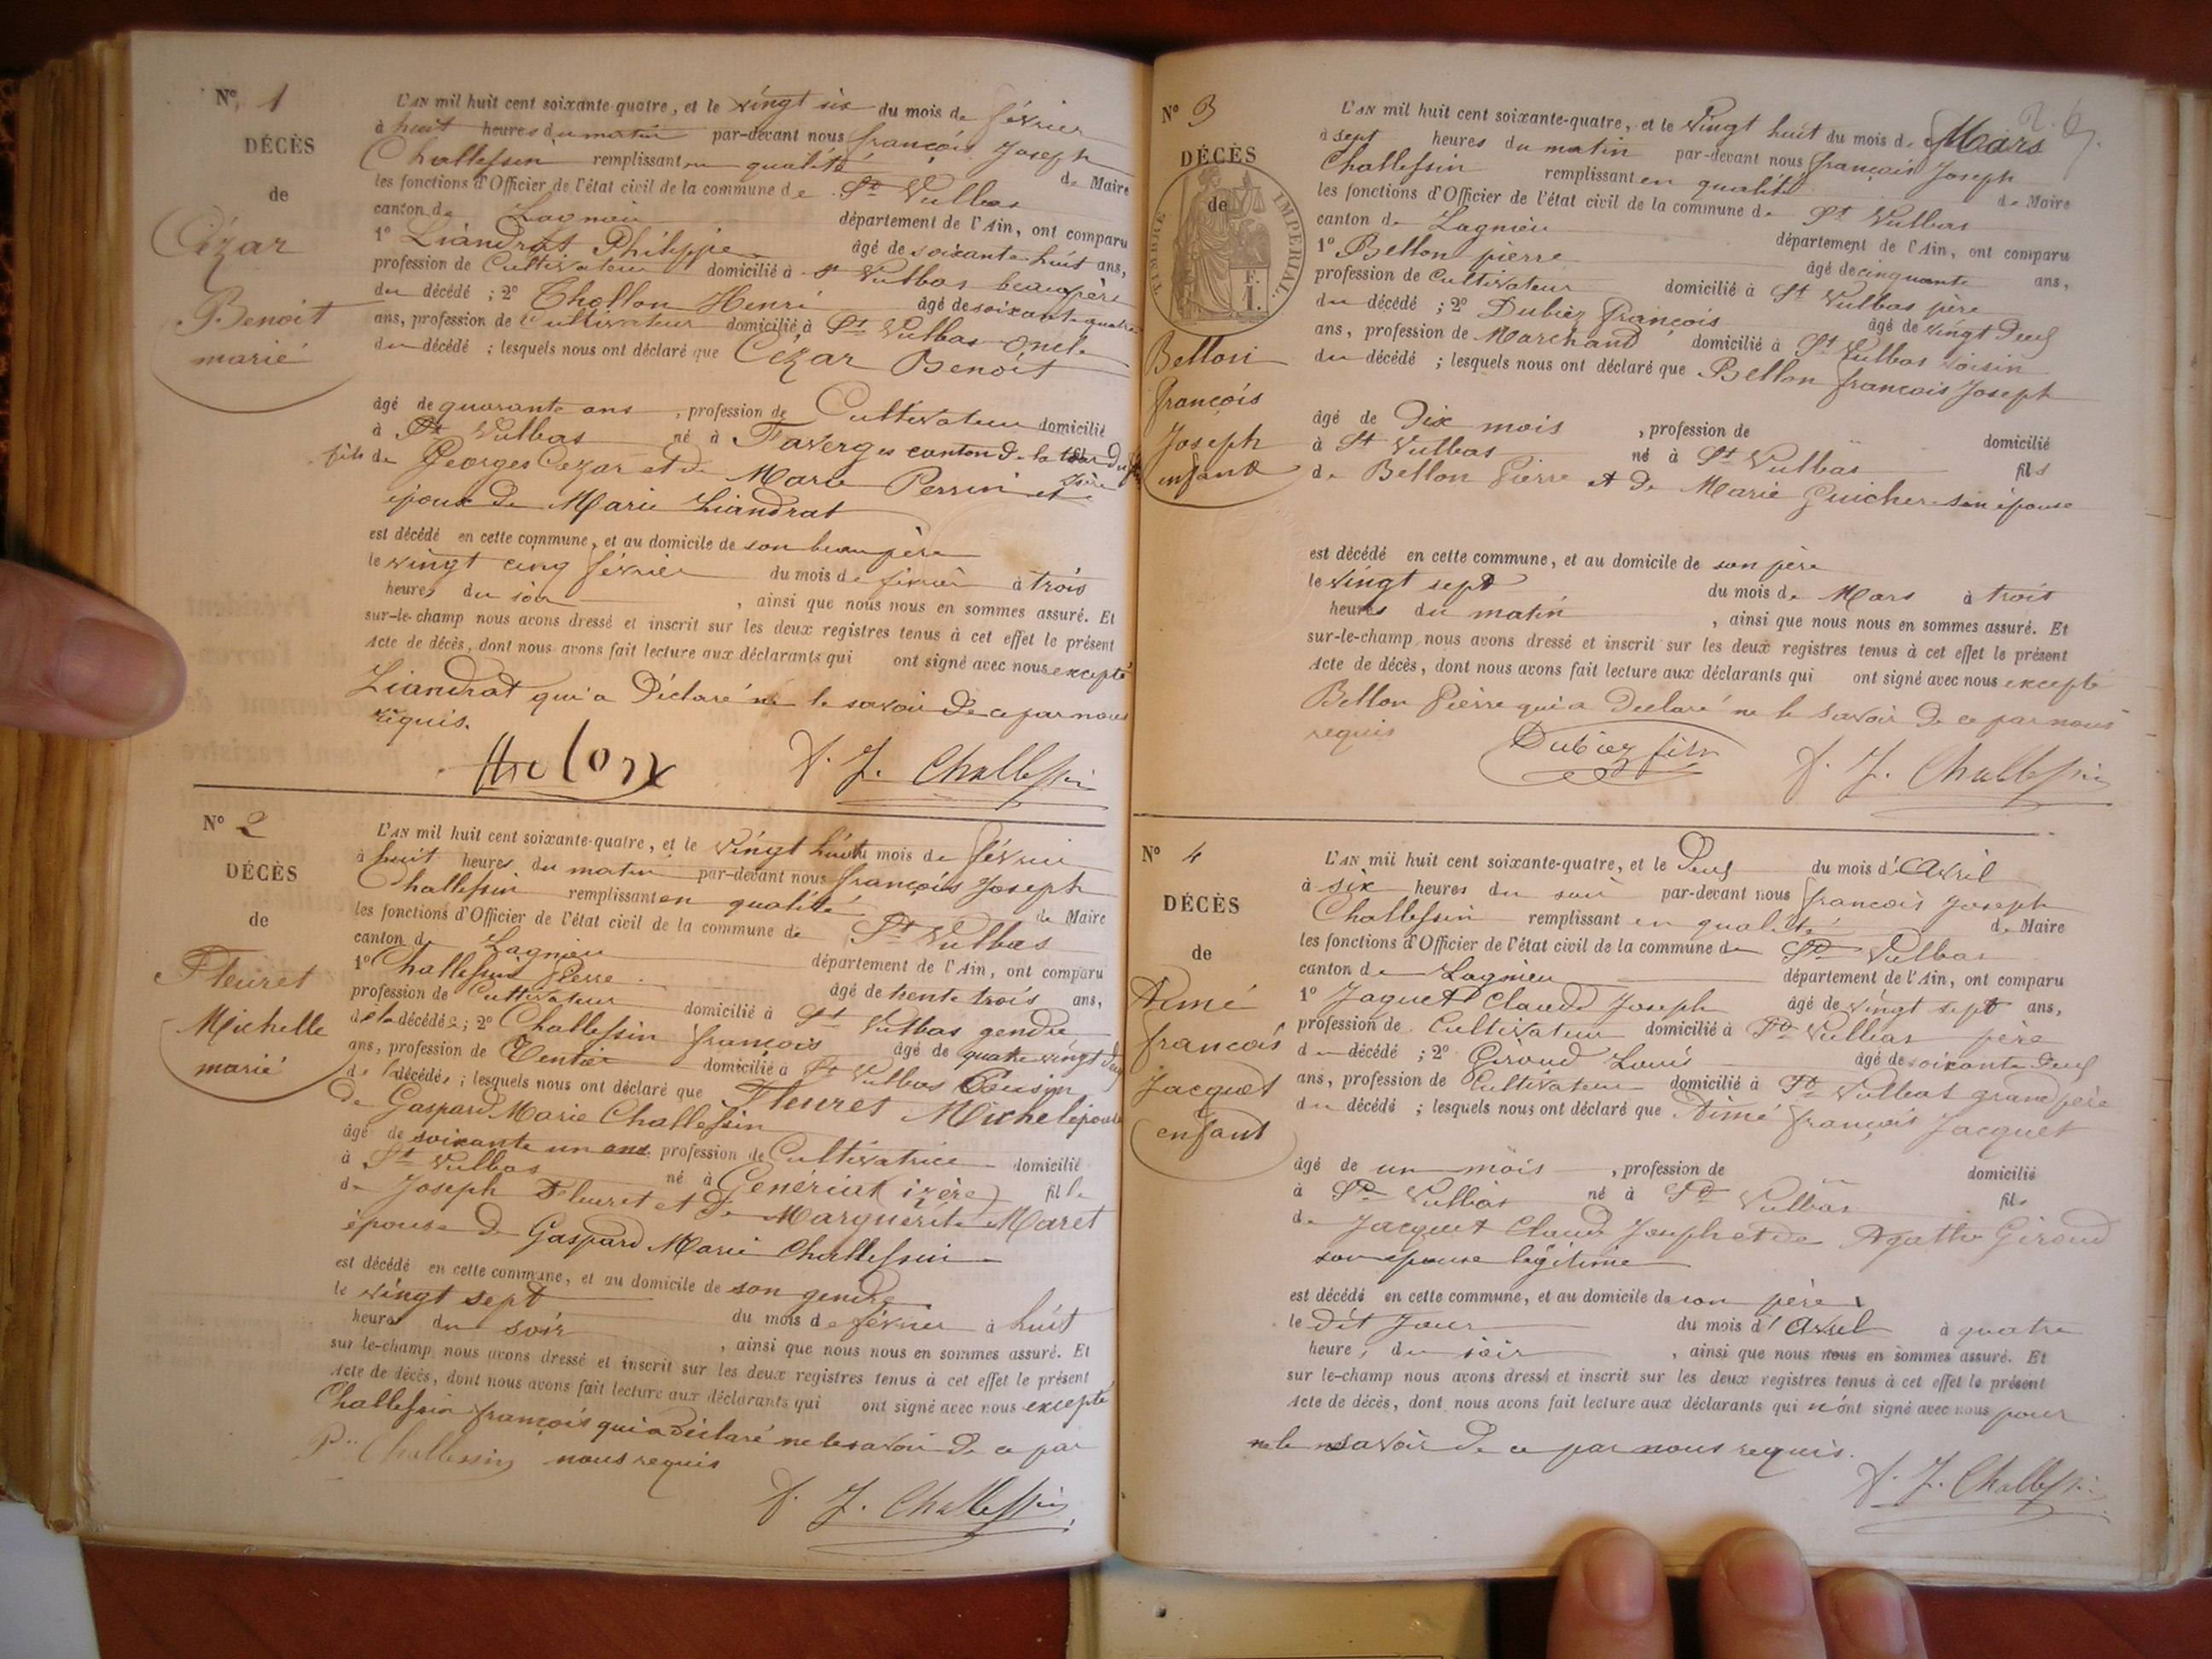 N° 1
DÉCÈS
de
Cézar
Benoit
marié
L'AN mil huit cent soixante-quatre, et le vingt six du mois de février
à huit heures du matin par-devant nous françois Joseph
Challessin remplissant en qualité de Maire
les fonctions d'Officier de l'état civil de la commune de St Vulbas
canton de Lagnieu département de l'Ain, ont comparu
1° Liandrat Philippe âgé de soixante huit ans,
profession de Cultivateur domicilié à St Vulbas beaupère
du décédé ; 2° Thollon Henri âgé de soixante quatre
ans, profession de Cultivateur domicilié à St Vulbas oncle
du décédé ; lesquels nous ont déclaré que Cézar Benoit
âgé de quarante ans, profession de Cultivateur domicilié
à St Vulbas né à Faverges canton de la tour du
fils de Georges Cezar et de Marie Perrin et
époux de Marie Liandrat
est décédé en cette commune, et au domicile de son beaupère
le vingt cinq février du mois de février à trois
heures du soir, ainsi que nous nous en sommes assuré. Et
sur-le-champ nous avons dressé et inscrit sur les deux registres tenus à cet effet le présent
Acte de décès, dont nous avons fait lecture aux déclarants qui ont signé avec nous excepté
Liandrat qui a Déclaré ne le savoir de ce par nous
requis.
F. J. Challessin
N° 2
DÉCÈS
de
Fleuret
Michelle
marié
L'AN mil huit cent soixante-quatre, et le vingt huit du mois de février
à huit heures du matin par-devant nous françois Joseph
Challessin remplissant en qualité de Maire
les fonctions d'Officier de l'état civil de la commune de St Vulbas
canton de Lagnieu département de l'Ain, ont comparu
1° Challessin Pierre âgé de trente trois ans,
profession de Cultivateur domicilié à St Vulbas gendre
de la décédée ; 2° Challessin françois âgé de quatre vingt
ans, profession de Rentier domicilié à St Vulbas Cousin
de la décédée ; lesquels nous ont déclaré que Fleuret Michel épouse
de Gaspard Marie Challessin
âgé de soixante un ans, profession de Cultivatrice domicilié
à St Vulbas né à (izère) fille
de Joseph Fleuret et de Marguerite Maret
épouse de Gaspard Marie Challessin
est décédé en cette commune, et au domicile de son gendre
le vingt sept du mois de février à huit
heures du soir, ainsi que nous nous en sommes assuré. Et
sur le-champ nous avons dressé et inscrit sur les deux registres tenus à cet effet le présent
Acte de décès, dont nous avons fait lecture aux déclarants qui ont signé avec nous excepté
Challessin françois qui a Déclaré ne le savoir de ce par
P. Challessin nous requis
F. J. Challessin
N° 3
DÉCÈS
de
TIMBRE IMPERIAL.
F. 1.
Bellon
François
Joseph
enfant
L'AN mil huit cent soixante-quatre, et le vingt huit du mois de Mars
à sept heures du matin par-devant nous françois Joseph
Challessin remplissant en qualité de Maire
les fonctions d'Officier de l'état civil de la commune de St Vulbas
canton de Lagnieu département de l'Ain, ont comparu
1° Bellon pierre âgé de cinquante ans,
profession de Cultivateur domicilié à St Vulbas père
du décédé ; 2° Dubiez François âgé de vingt Deux
ans, profession de Marchand domicilié à St Vulbas voisin
du décédé ; lesquels nous ont déclaré que Bellon françois Joseph
âgé de Dix mois, profession de domicilié
à St Vulbas né à St Vulbas fils
de Bellon Pierre et de Marie Guicher son épouse
est décédé en cette commune, et au domicile de son père
le vingt sept du mois de Mars à trois
heures du matin, ainsi que nous nous en sommes assuré. Et
sur-le-champ nous avons dressé et inscrit sur les deux registres tenus à cet effet le présent
Acte de décès, dont nous avons fait lecture aux déclarants qui ont signé avec nous excepté
Bellon Pierre qui a Declaré ne le savoir de ce par nous
requis
Dubiez fils F. J. Challessin
N° 4
DÉCÈS
de
Aimé
françois
Jacquet
enfant
L'AN mil huit cent soixante-quatre, et le Deux du mois d'Avril
à six heures du soir par-devant nous françois Joseph
Challessin remplissant en qualité de Maire
les fonctions d'Officier de l'état civil de la commune de St Vulbas
canton de Lagnieu département de l'Ain, ont comparu
1° Jaquet Claude Joseph âgé de vingt sept ans,
profession de Cultivateur domicilié à St Vulbas père
du décédé ; 2° Giroud Louis âgé de soixante Deux
ans, profession de Cultivateur domicilié à St Vulbas grand père
du décédé ; lesquels nous ont déclaré que Aimé françois Jacquet
âgé de un mois, profession de domicilié
à St Vulbas né à St Vulbas fils
de Jacquet Claude Joseph et de Agathe Giroud
son épouse légitime
est décédé en cette commune, et au domicile de son père
le dit Jour du mois d'Avril à quatre
heures du soir, ainsi que nous nous en sommes assuré. Et
sur le-champ nous avons dressé et inscrit sur les deux registres tenus à cet effet le présent
Acte de décès, dont nous avons fait lecture aux déclarants qui n'ont signé avec nous pour
ne le savoir de ce par nous requis.
F. J. Challessin